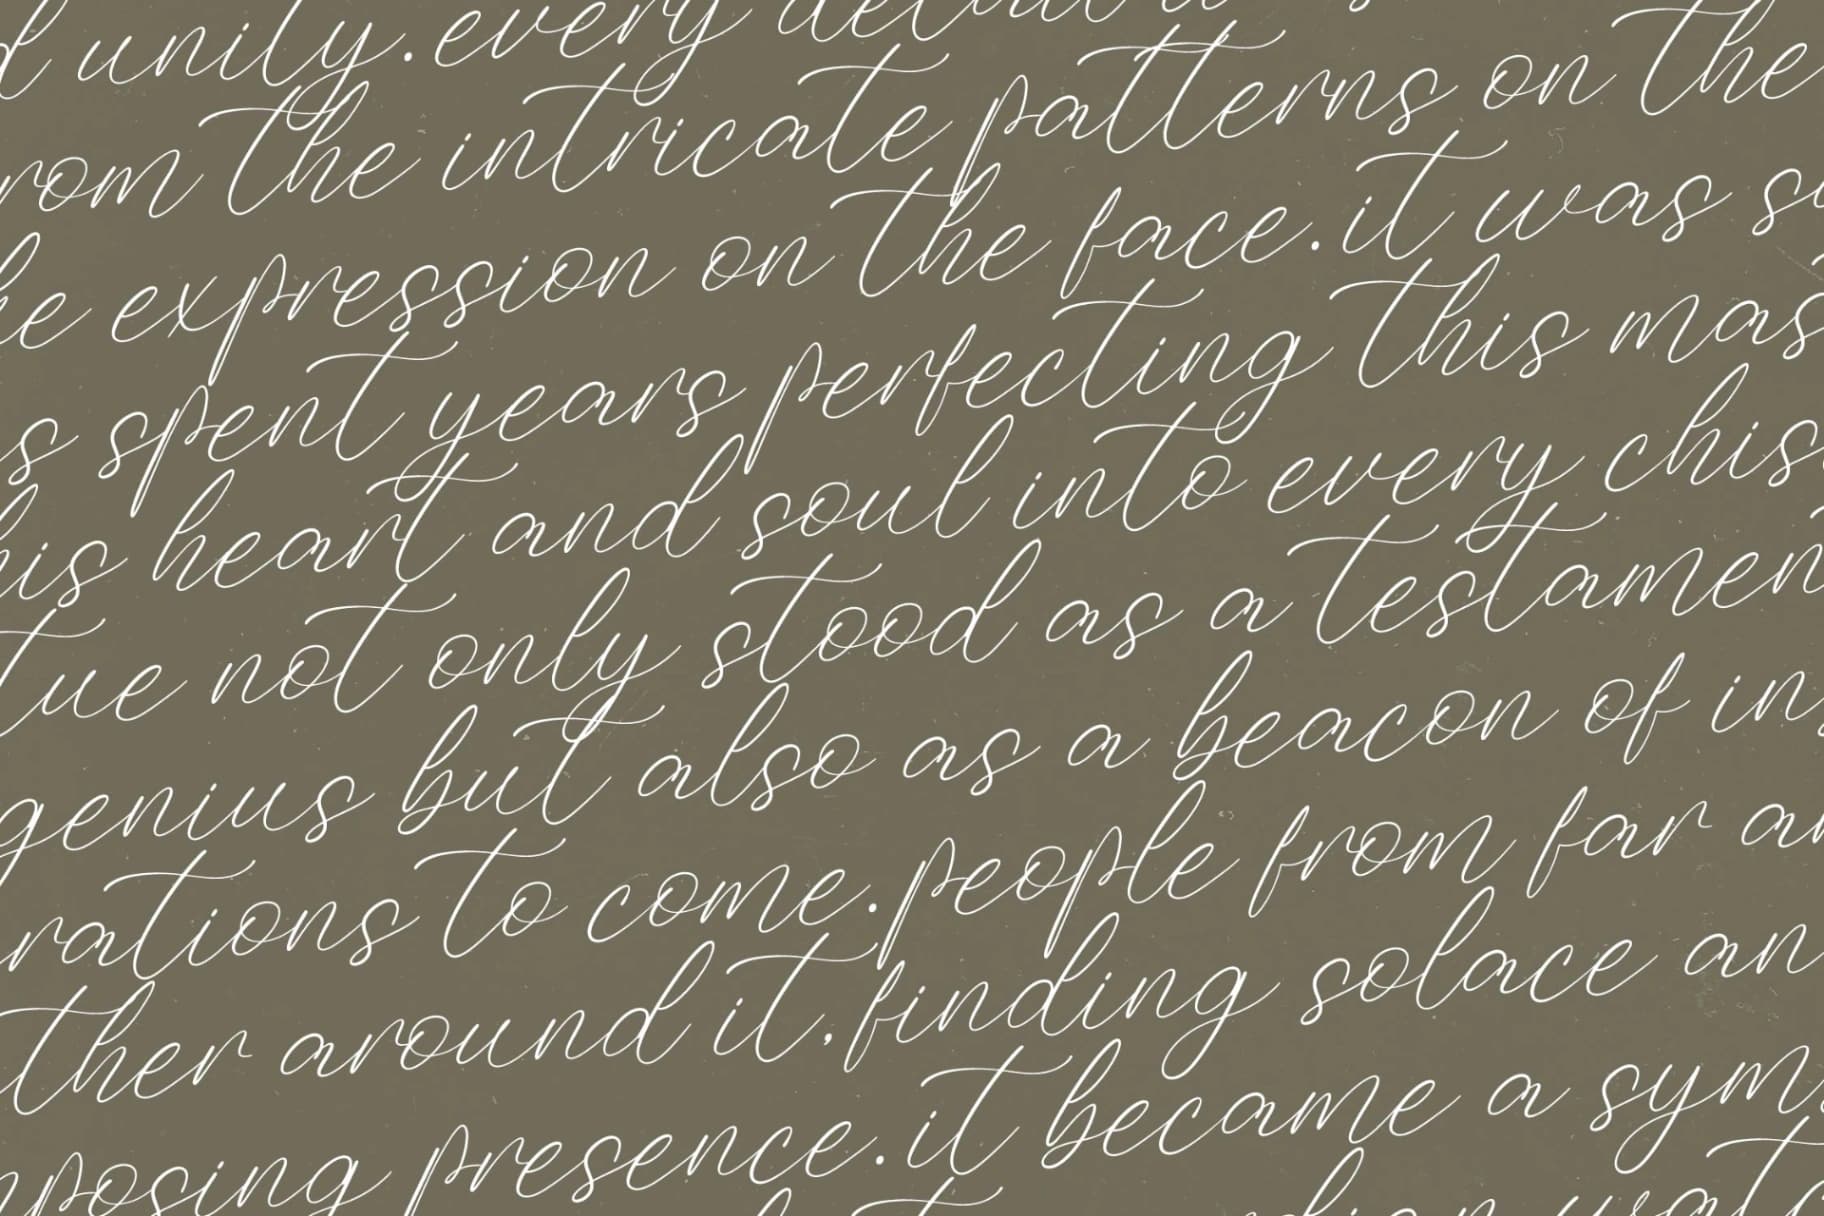 unity.every detail
the intricate patterns on the
expression on the face.it was
spent years perfecting this
his heart and soul into every
not only stood as a
genius but also as a beacon of
to come.people from far
around it,finding solace
presence.it became a